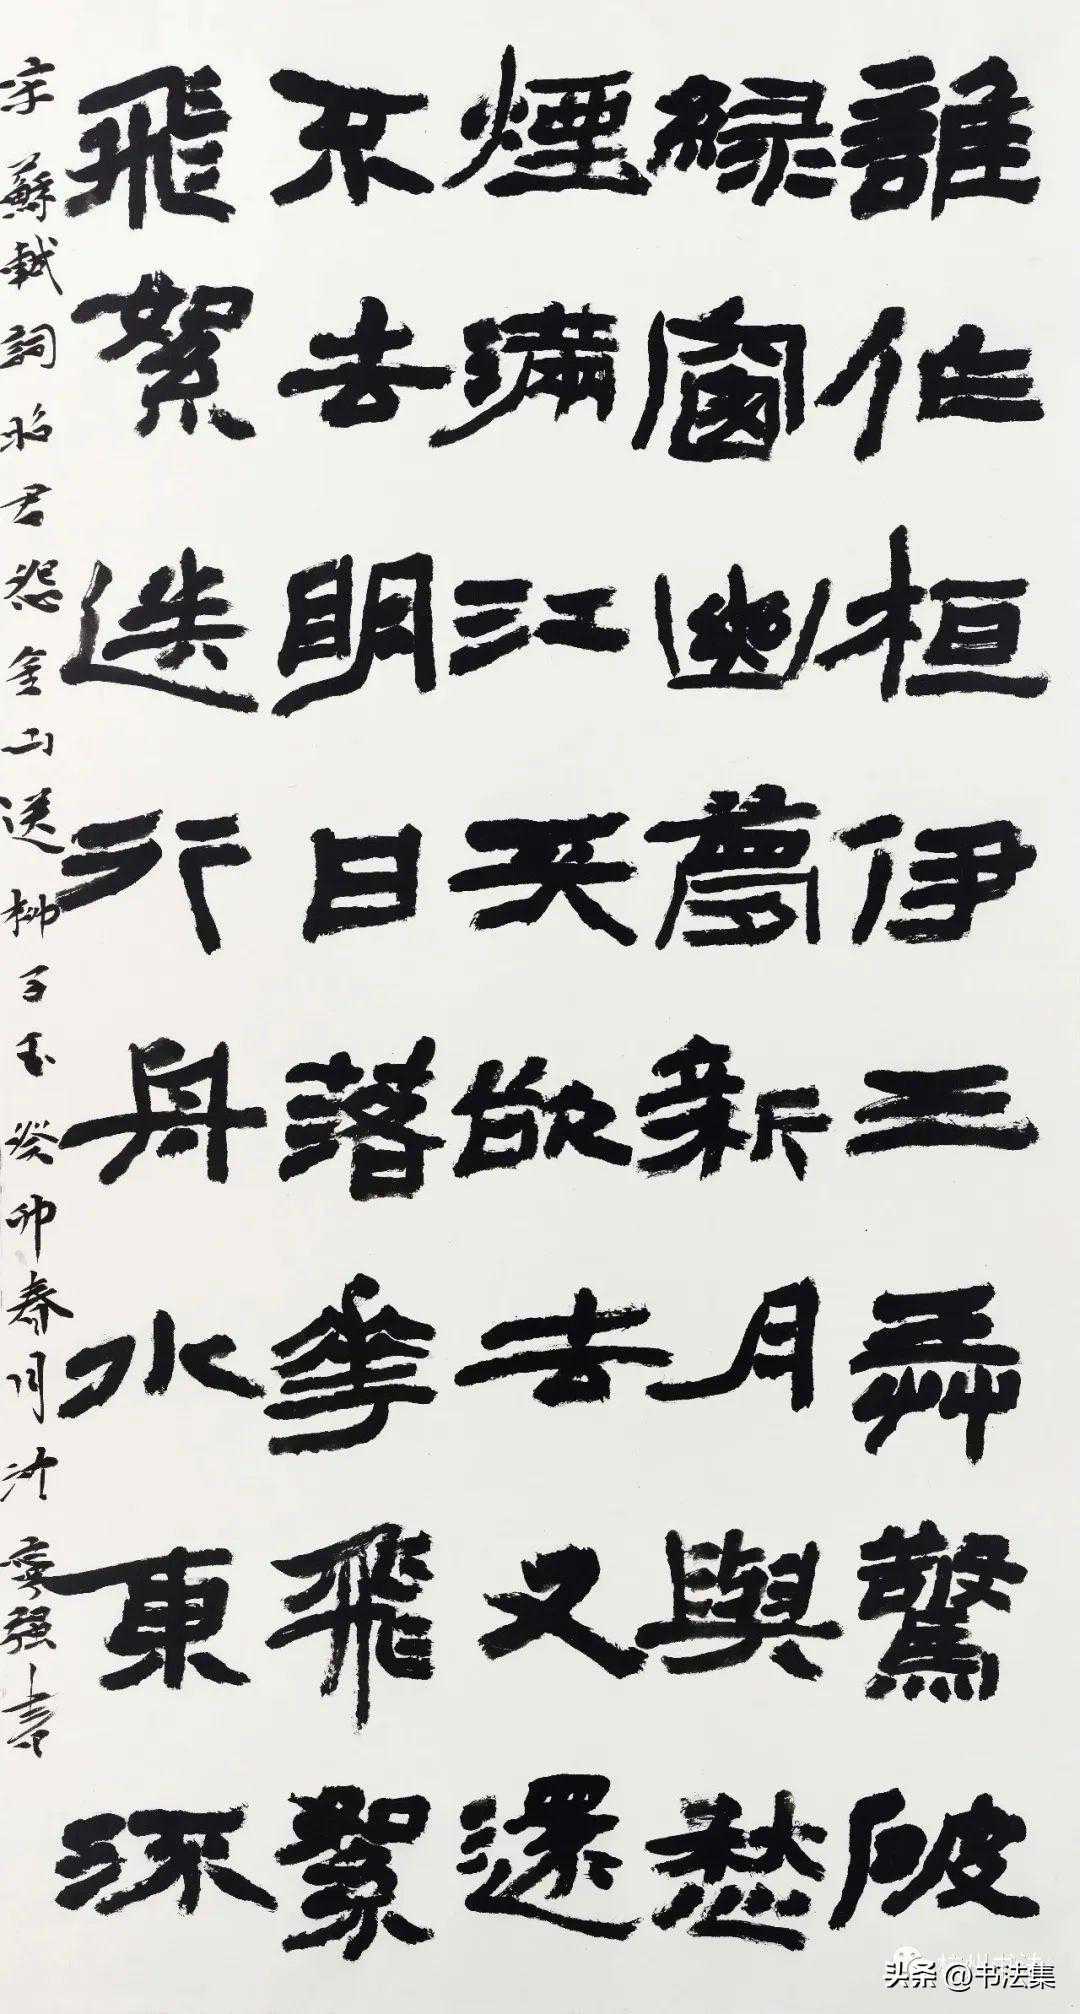 誰作桓伊三弄驚破
緑窗幽夢新月與愁
煙滿江天欲去又還
不去明日落花飛絮
飛絮送行舟水東流
宋蘇軾詞昭君怨金山送柳子玉癸卯春月寧强書
头条 @书法集